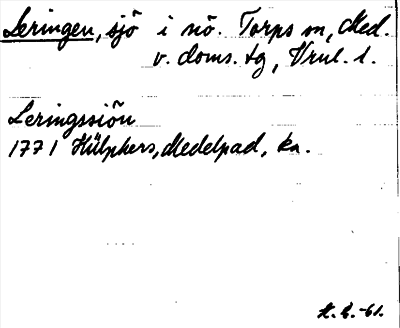 Leringen, sjö i nö. Torps sn, Med.
v. doms. tg, Vrul. 1.
Leringssiön
1771 Hülphers, Medelpad, ka.
H. E. -61.